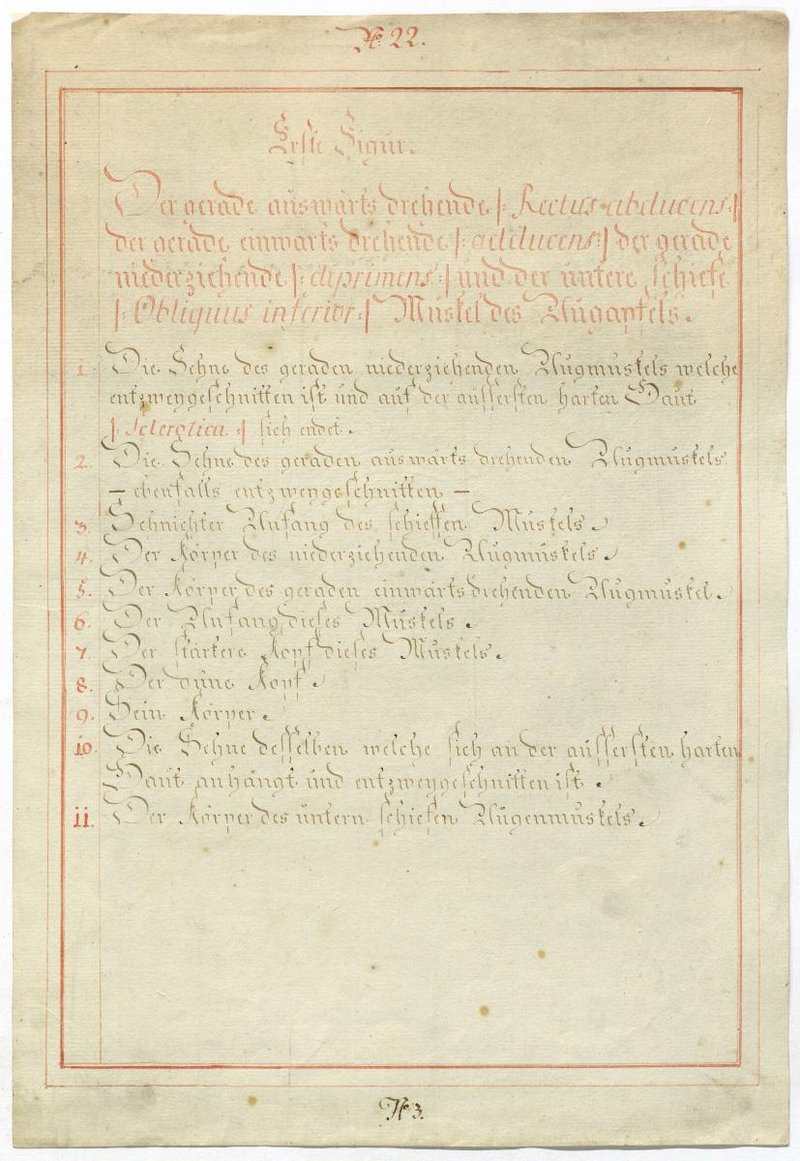 № 22.
Erste Figur.
Der gerade auswärts drehende |: Rectus abducens :|
der gerade einwärts drehende |: adducens :| der gerade
niederziehende |: diprimens :| und der untere schiefe
|: Obliquus inferior :| Muskel des Augapfels.
1. Die Sehne des geraden niederziehenden Augmuskels welche
entzweygeschnitten ist und auf der äussersten harten Haut
|: Sclerotica :| sich endet.
2. Die Sehne des geraden auswärts drehenden Augmuskels
— ebenfalls entzweygeschnitten —
3. Sehnichter Anfang des schieffen Muskels.
4. Der Körper des niederziehenden Augmuskels.
5. Der Körper des geraden einwärts drehenden Augmuskel.
6. Der Anfang dieses Muskels.
7. Der stärkere Kopf dieses Muskels.
8. Der düne Kopf.
9. Sein Körper.
10. Die Sehne desselben welche sich an der äussersten harten
Haut anhängt und entzweygeschnitten ist.
11. Der Körper des untern schiefen Augenmuskels.
№ 3.